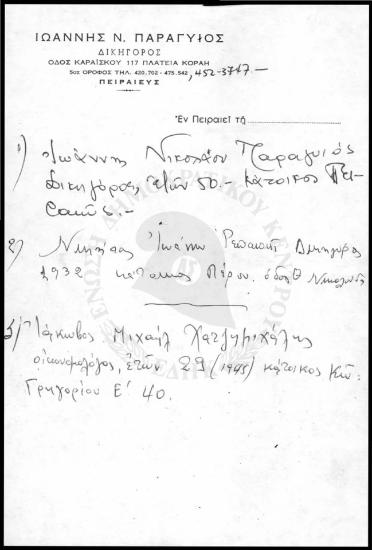 ΙΩΑΝΝΗΣ Ν. ΠΑΡΑΓΥΙΟΣ
ΔΙΚΗΓΟΡΟΣ
ΟΔΟΣ ΚΑΡΑΪΣΚΟΥ 117 ΠΛΑΤΕΙΑ ΚΟΡΑΗ
5ος ΟΡΟΦΟΣ ΤΗΛ. 420.702 - 475.542, 452-3747 -
ΠΕΙΡΑΙΕΥΣ
Ἐν Πειραιεῖ τῇ
1) Ἰωάννης Νικολάου Παραγυιός
Δικηγόρος, ἐτῶν 50.- κάτοικος Πει-
ραιῶς.-
2) Νικήτας Ἰωάννη Δικηγόρος
1932 κάτοικος ὁδὸς
3) Ἰάκωβος Μιχαήλ Χατζημιχάλης
οἰκονομολόγος, ἐτῶν 29 (1945) κάτοικος Κῶ:
Γρηγορίου Ε' 40.
ΕΝΩΣΗ ΔΗΜΟΚΡΑΤΙΚΟΥ ΚΕΝΤΡΟΥ
ΕΔΗΚ